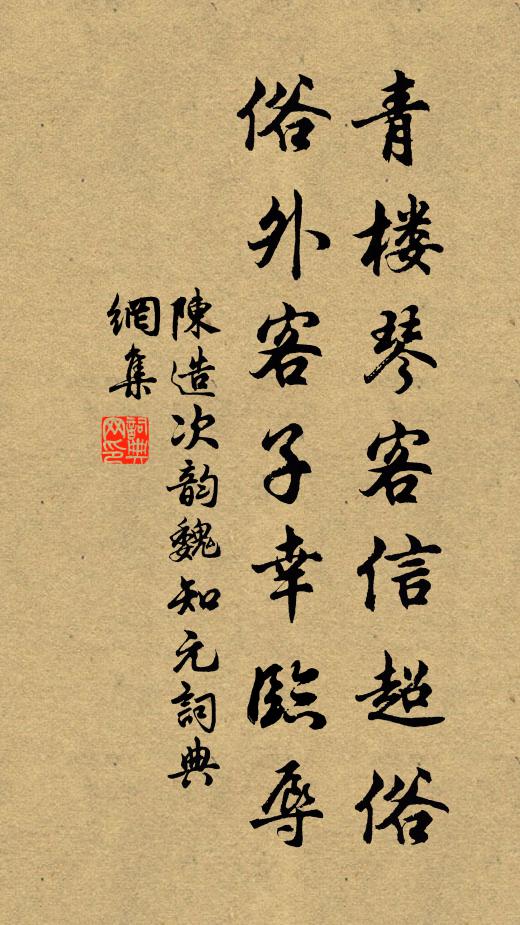 青楼琴客信超俗
俗外客子幸臨辱
陳造次韵魏知元詞典
網集
詞典
网印